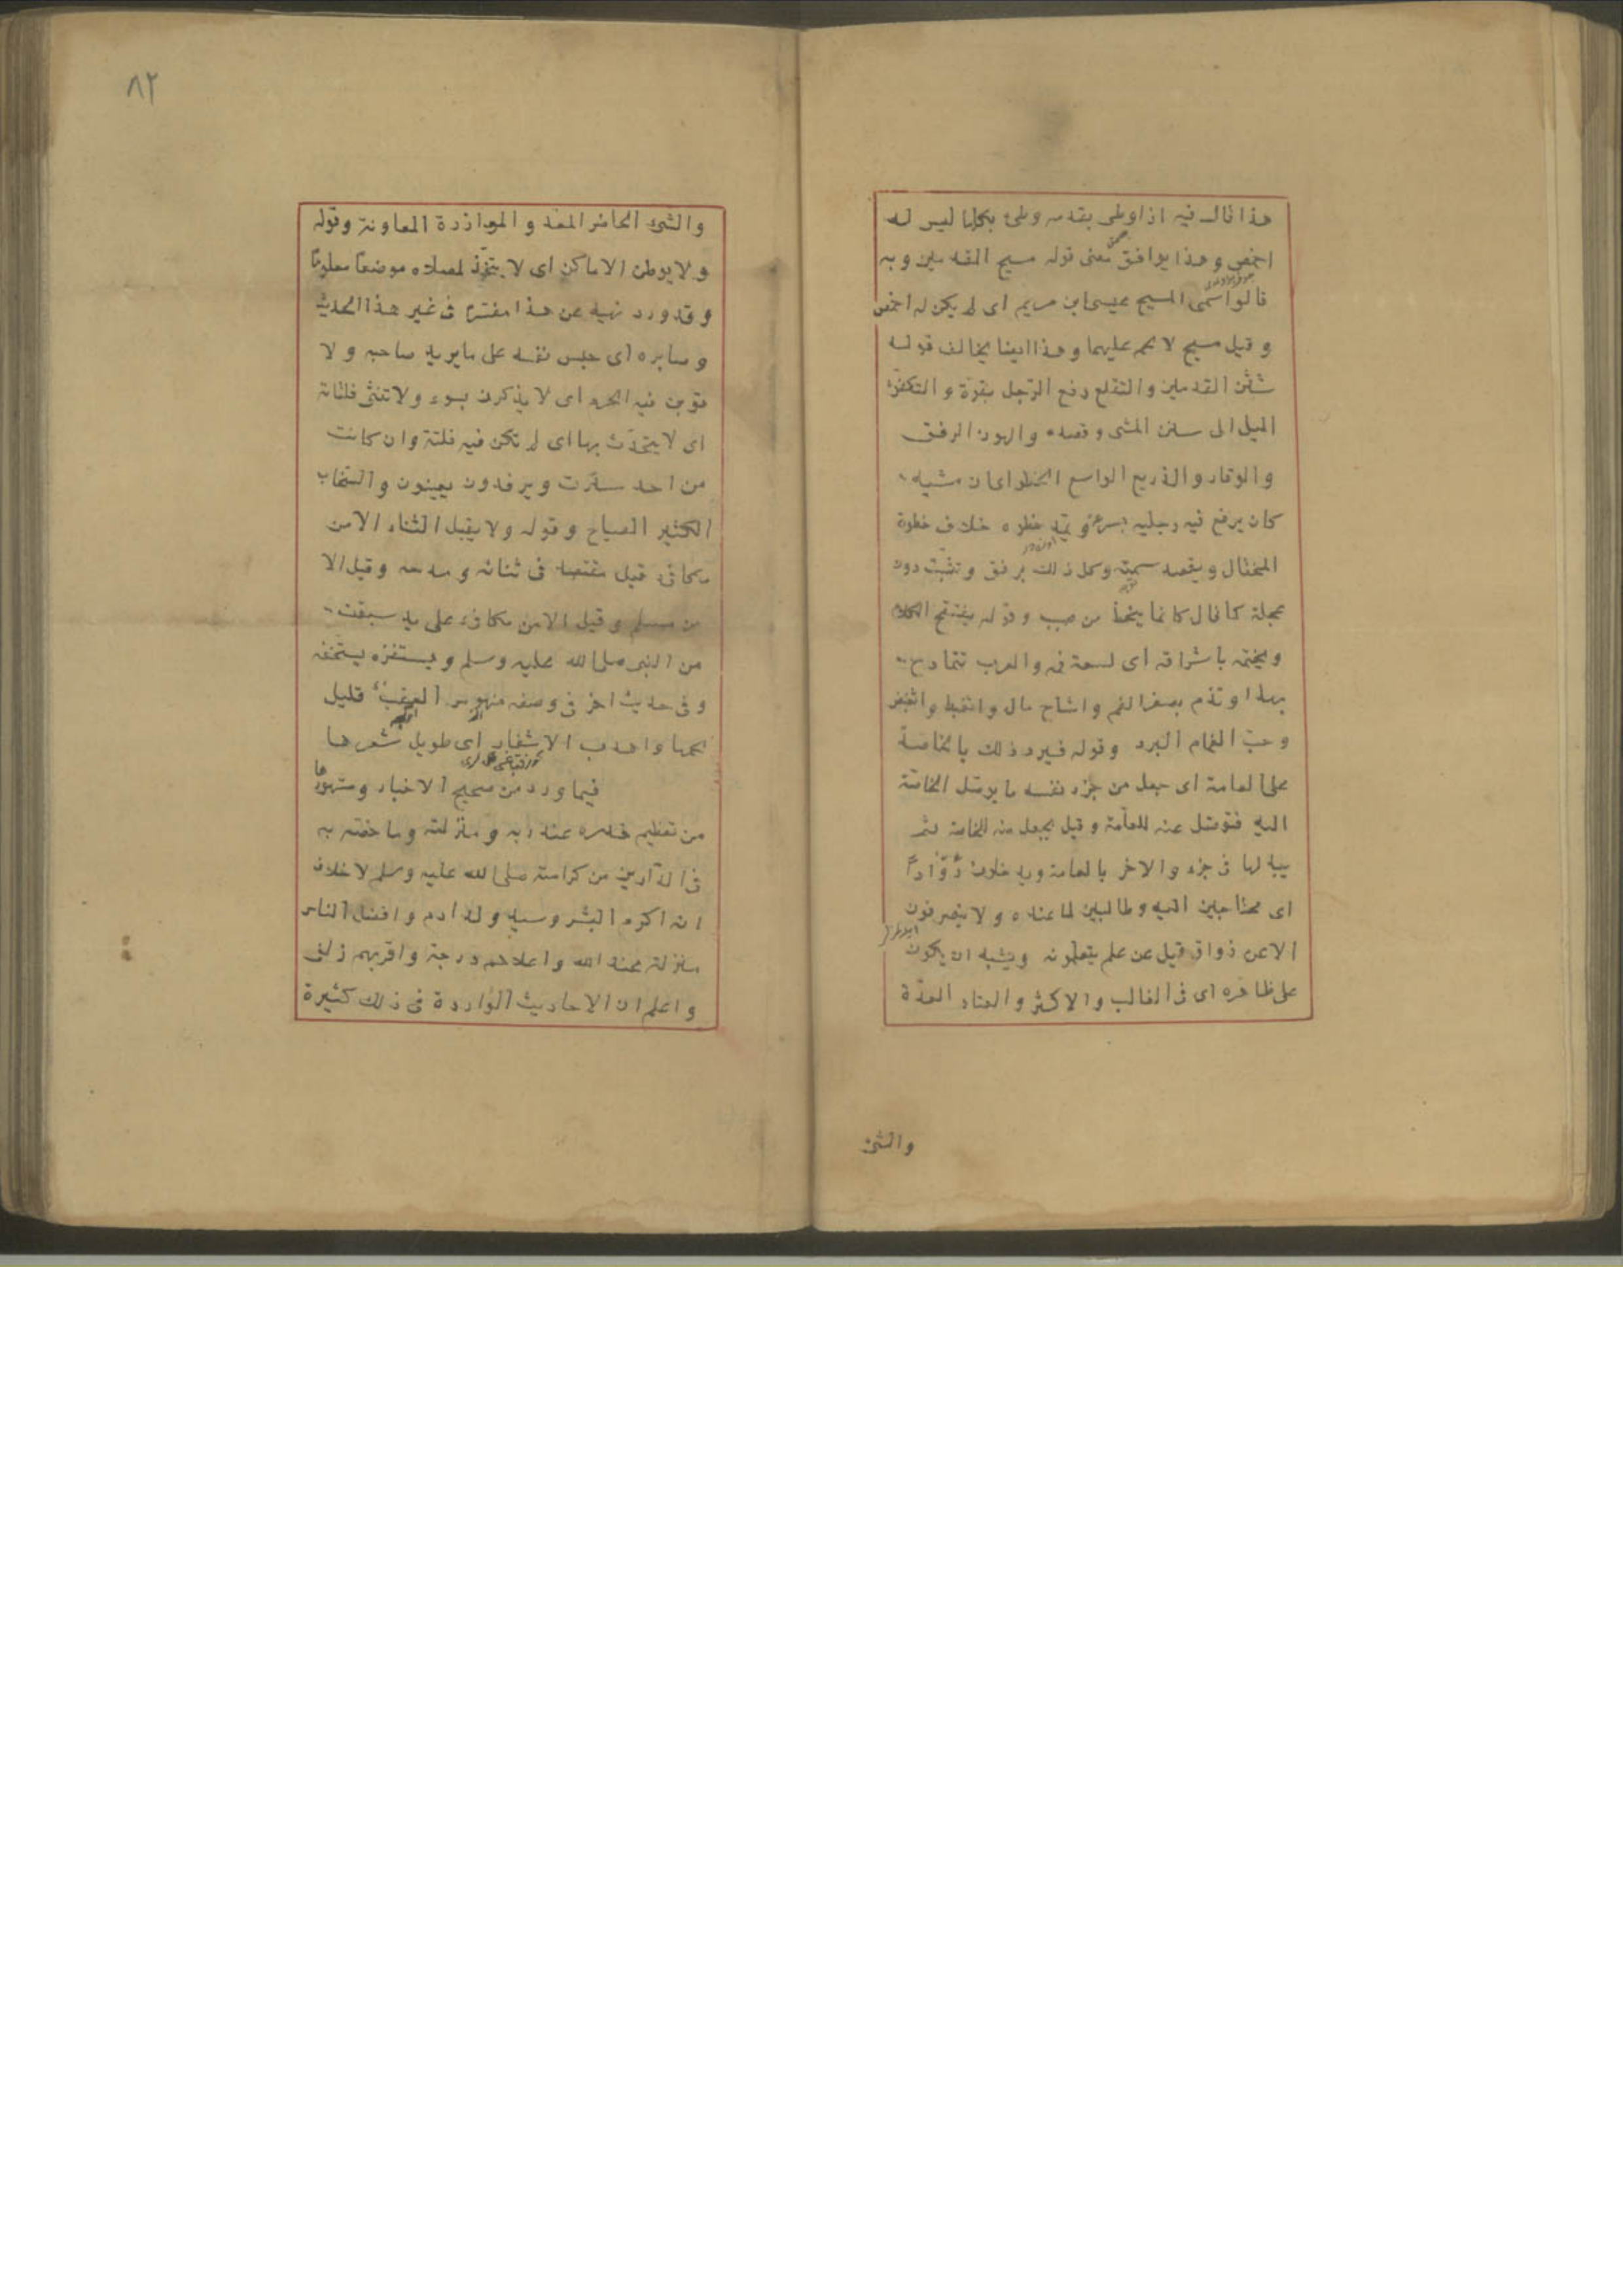 هذا قال فيه اذا وطى بقدمه وطئ بكلها ليس له
اخمص وهذا يوافق معنى قوله مسيح القدمين وبه
قالوا سمى المسيح عيسى ابن مريم اى لم يكن له اخمص
وقيل مسيح لا لحم عليهما وهذا ايضا يخالف قوله
شثن القدمين والتقلع رفع الرّجل بقوّة والتكفؤ
الميل الى سنن المشى وقصده والهون الرفق
والوقار والذريع الواسع الخطو اى ان مشيه
كان يرفع فيه رجليه بسرعة ويمدّ خطوه خلاف خطوة
المختال ويقصد سمته وكل ذلك برفق وتثبت دون
عجلة كما قال كانما ينحط من صبب وقوله يفتتح الكلام
ويختمه باشداقه اى لسعة فمه والعرب تتمادح
بهذا وتذم بصغر الفم واشاح مال وانقبط وانقبض
وحبّ الغمام البرد وقوله فيرد ذلك بالخاصة
على العامة اى جعل من جزء نفسه ما يوصل الخاصّة
اليه فتوصل عنه للعامّة وقيل يجعل منه للخاصة ثم
يبدلها فى جزء والاخر بالعامة ويدخلون رُوّادًا
اى محتاجين اليه وطالبين لما عنده ولا ينصرفون
الا عن ذواق قيل عن علم يتعلمونه ويشبه ان يكون
على ظاهره اى فى الغالب والاكثر والعتاد العدّة
والشئ
٨٢
والشئ الحاضر المعد والموازرة المعاونة وقوله
ولا يوطن الاماكن اى لا يتّخذ لمصلاه موضعا معلوما
وقد ورد نهيه عن هذا مفسّرا فى غير هذا الحديث
وصابره اى حبس نفسه على ما يريد صاحبه ولا
تؤبن فيه الحرم اى لا يذكرن بسوء ولا تنثى فلتاته
اى لا يتحدّث بها اى لم تكن فيه فلتة وان كانت
من احد سترت ويرفدون يعينون والسّخاب
الكثير الصياح وقوله ولا يقبل الثناء الا من
مكافئ قيل مقتصد فى ثنائه ومدحه وقيل الا
من مسلم وقيل الا من مكافئ على يد سبقت
من النبى صلى الله عليه وسلم ويستفزه يستخفه
وفى حديث اخر فى وصفه منهوس العقب قليل
لحمها واهدب الاشفار اى طويل شعرها
فيما ورد من صحيح الاخبار ومشهورها
من تعظيم قدره عند ربه ومنزلته وما خصّه به
فى الدّارين من كرامته صلى الله عليه وسلم لا خلاف
انه اكرم البشر وسيد ولد ادم وافضل الناس
منزلة عند الله واعلاهم درجة واقربهم زلفى
واعلم ان الاحاديث الواردة فى ذلك كثيرة